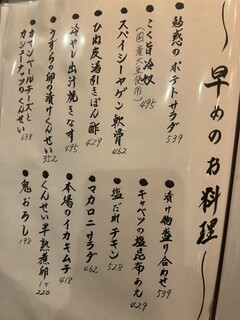 早めのお料理
魅惑のポテトサラダ 539
こく旨冷奴 495
(国産大豆使用)
スパイシーヤゲン軟骨 462
ひね皮湯引きぽん酢 429
冷やし出汁焼きなす 495
うずらの卵の漬けくんせい 352
カマンベールチーズと
カシューナッツのくんせい 638
漬け物盛り合わせ 539
キャベツの塩昆布あえ 429
塩だれチキン 528
マカロニサラダ 462
本場のイカキムチ 418
くんせい半熟煮卵 1ヶ 220
鬼おろし 198